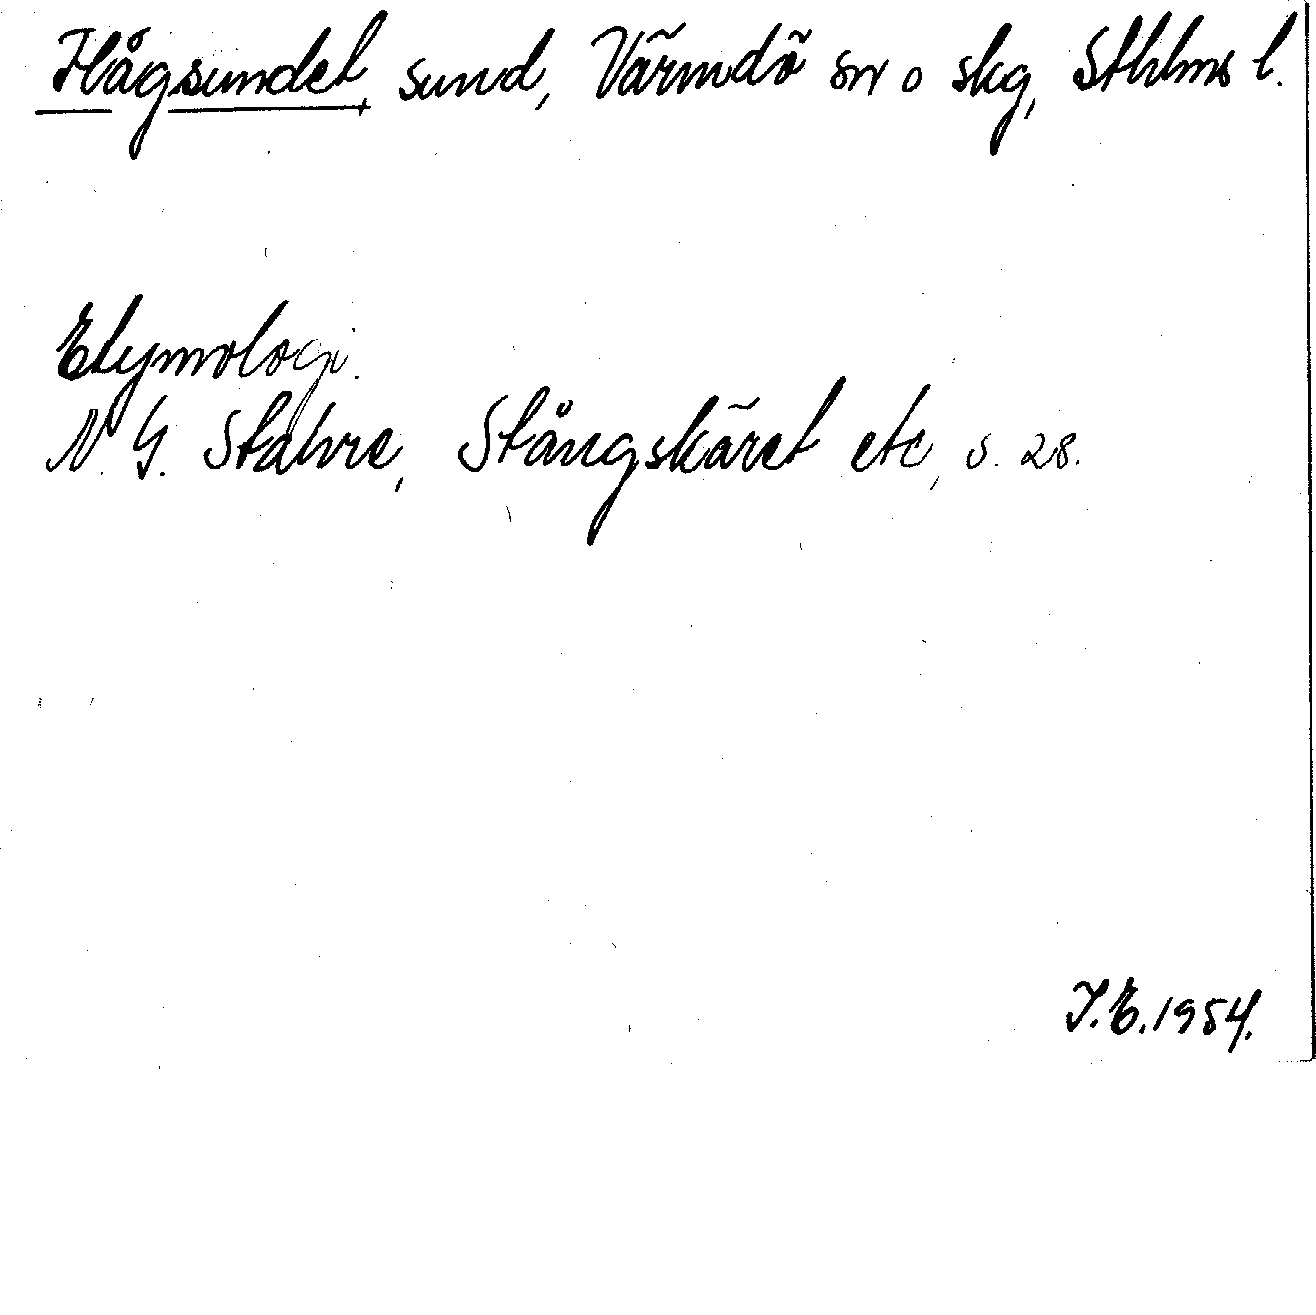 Hågsundet, sund, Värmdö sn o skg, Sthlms l.
Etymologi.
N. G. Stahre, Stångskäret etc, s. 28.
I. E. 1954.